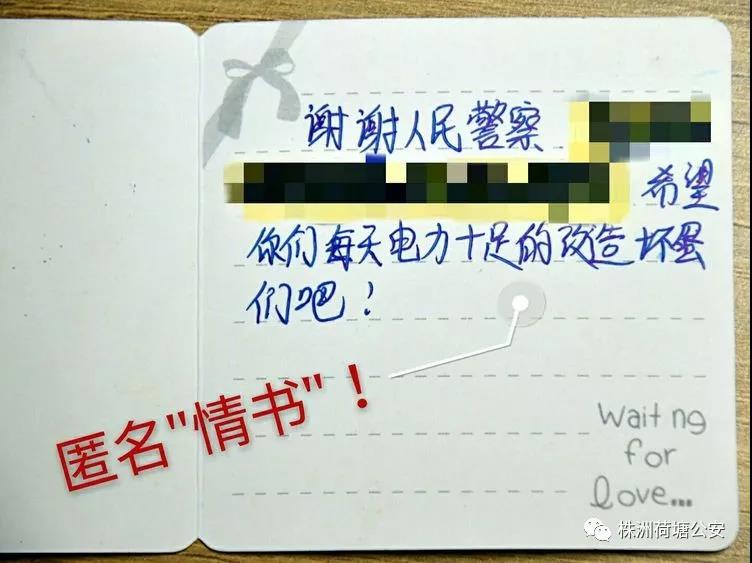 谢谢人民警察
希望
你们每天电力十足的改造坏蛋
们吧！
匿名"情书"！
Waiting
for
love...
株洲荷塘公安